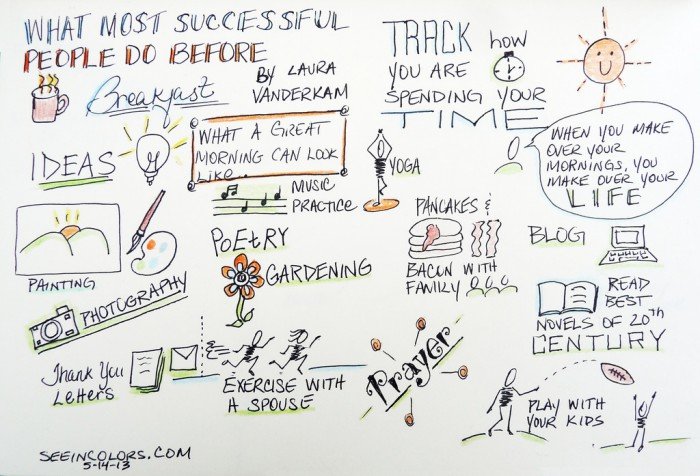 WHAT MOST SUCCESSFUL
PEOPLE DO BEFORE
Breakfast
BY LAURA
VANDERKAM
TRACK how
YOU ARE
SPENDING YOUR
TIME
IDEAS
WHAT A GREAT
MORNING CAN LOOK
LIKE...
WHEN YOU MAKE
OVER YOUR
MORNINGS, YOU
MAKE OVER YOUR
LIFE
MUSIC
PRACTICE
YOGA
PAINTING
POEtRY
GARDENING
PANCAKES &
BACON WITH
FAMILY
BLOG
PHOTOGRAPHY
READ
BEST
NOVELS OF 20th
CENTURY
Thank You
Letters
EXERCISE WITH
A SPOUSE
Prayer
PLAY WITH
YOUR KIDS
SEEINCOLORS.COM
5-14-13